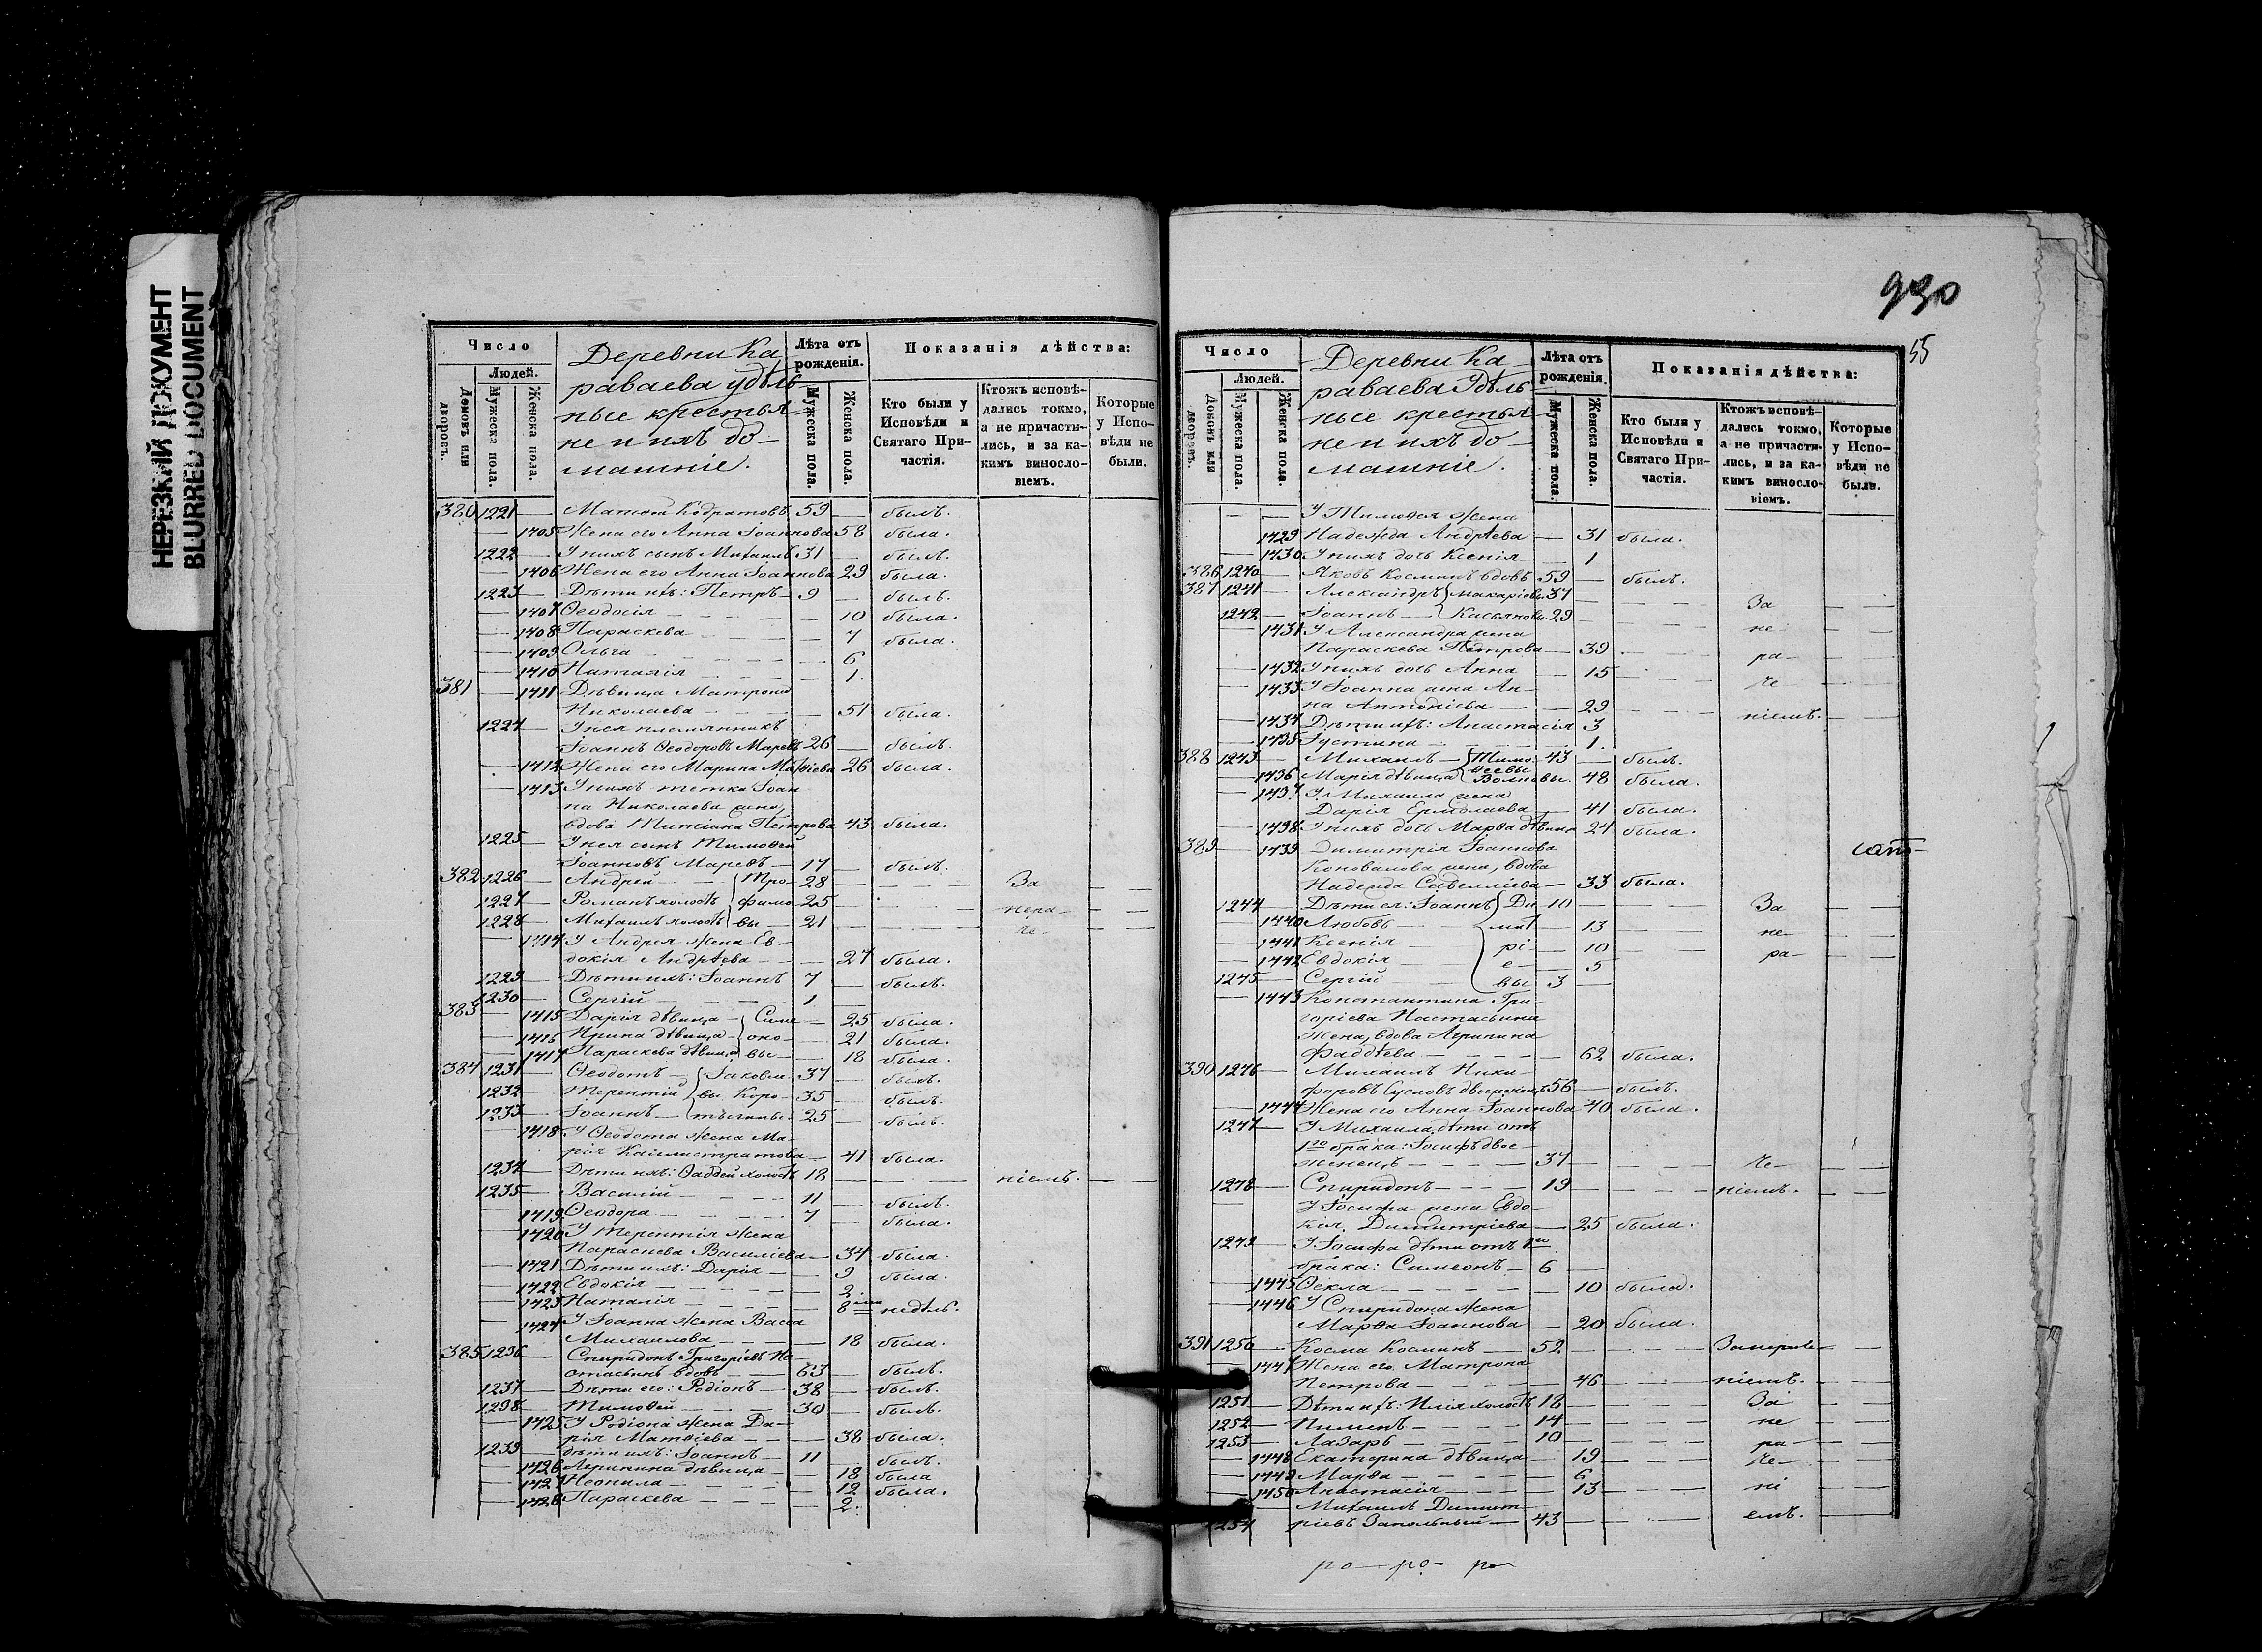 НЕРЕЗКИЙ ДОКУМЕНТ
BLURRED DOCUMENT
Число
Людей.
Домовъ или дворовъ.
Мужеска пола.
Женска пола.
Деревни Ка
раваева удѣль
ные крестья
не и ихъ до-
машніе.
Лѣта отъ рожденія.
Мужеска пола.
Женска пола.
Показанія дѣйства:
Кто были у Исповѣди и Святаго Причастія.
Ктожъ исповѣ-
дались токмо,
а не причасти-
лись, и за ка-
кимъ винсло-
віемъ.
Которые
у Испо-
вѣди не
были.
380 1221 — Матвѣй Кодратовъ 59 — былъ.
— 1405 Жена его Анна Іоаннова 58 была.
1222 — У нихъ сынъ Михаилъ 31 — былъ.
— 1406 Жена его Анна Іоаннова 29 была.
1223 — Дѣти ихъ: Петръ — 9 — былъ.
— 1407 Ѳеодосія — 10 была.
— 1408 Параскева — 7 была.
— 1409 Ольга — 6
— 1410 Наталія — 1.
381 — 1411 Дѣвица Матрона
Николаева — 51 была.
1224 — У нея племянникъ
Іоаннъ Ѳеодоровъ Маревъ 26 — былъ.
— 1412 Жена его Марина 26 была.
— 1413 У нихъ тетка Іоан
на Николаева жена,
вдова Татіана Петрова 43 была.
1225 — У нея сынъ Тимоѳей
Іоанновъ Маревъ — 17 — былъ.
382 1226 — Андрей — Тро- 28 — За
1227 — Романъ холостъ фимо 25 — нера-
1228 — Михаилъ холостъ вы — 21 — че-
— 1414 У Андрея жена Ев-
докія Андрѣева — 27 была.
1229 — Дѣти ихъ: Іоаннъ 7 — былъ.
1230 — Сергій — 1 —
383 — 1415 Дарія дѣвица — Симе — 25 была.
— 1416 Ирина дѣвица — оно — 21 была.
— 1417 Параскева дѣвица вы — 18 была.
384 1231 — Ѳеодотъ — Іаковле 37 — былъ.
1232 — Терентій вы Коро- 35 — былъ.
1233 — Іоаннъ — 25 — былъ.
— 1418 У Ѳеодота жена Ма-
рія Каллистратова — 41 была.
1234 — Дѣти ихъ: Ѳаддей холостъ 18 — ніемъ.
1235 — Василій — 11 — былъ.
— 1419 Ѳеодора — 7 — была.
— 1420 У Терентія жена
Параскева Василіева — 34 была.
— 1421 Дѣти ихъ: Дарія — 9 была.
— 1422 Евдокія — 2.
— 1423 Наталія — 8 недѣль.
— 1424 У Іоанна жена Васса
Михаилова — 18 была.
385 1236 — Спиридонъ Григоріевъ На
стасьинъ вдовъ — 63 — былъ.
1237 — Дѣти его: Родіонъ — 38 — былъ.
1238 — Тимоѳей — 30 — былъ.
— 1425 У Родіона жена Да-
рія Матвіева — 38 была.
1239 — Дѣти ихъ: Іоаннъ — 11 былъ.
— 1426 Агрипина дѣвица — 18 была
— 1427 Неонила — 12 была.
— 1428 Параскева — 2.
930
55
Число
Людей.
Домовъ или дворовъ.
Мужеска пола.
Женска пола.
Деревни Ка
раваева Удѣль
ные крестья-
не и ихъ до-
машніе.
Лѣта отъ рожденія.
Мужеска пола.
Женска пола.
Показанія дѣйства:
Кто были у Исповѣди и Святаго Причастія.
Ктожъ исповѣ-
дались токмо,
а не причасти-
лись, и за ка-
кимъ винсло-
віемъ.
Которые
у Испо-
вѣди не
были.
У Тимоѳея жена
1429 Надежда Андрѣева — 31 была.
— 1430 У нихъ дочь Ксенія — 1
386 1240 — Яковъ Косминъ вдовъ 59 — былъ.
387 1241 — Александръ Макаріевы 37 — За
1242 — Іоаннъ — Касьяновы 29 — не
— 1431 У Александра жена
Параскева Петрова — 39 — ра-
— 1432 У нихъ дочь Анна — 15 — че
— 1433 У Іоанна жена Ан-
на Антоніева — 29 — ніемъ.
— 1434 Дѣти ихъ: Анастасія 3
— 1435 Іустина — 1.
388 1243 — Михаилъ — Тимо- 43 — былъ.
— 1436 Марія дѣвица ѳеевы 48 была.
— 1437 У Михаила жена
Дарія Ермолаева — 41 была.
— 1438 У нихъ дочь Марѳа дѣвица 24 была.
389 — 1439 Димитрія Іоаннова
Коновалова жена, вдова
Надежда Савелліева — 33 была.
1244 — Дѣти ея: Іоаннъ Ди- 10 — За
— 1440 Любовь — мит — 13 — не-
— 1441 Ксенія — рі — 10 — ра-
— 1442 Евдокія — е — 5
1245 — Сергій — вы 3 —
— 1443 Константина Гри-
горіева Настасьина
жена, вдова Агрипина
Фаддѣева — 62 была.
390 1246 — Михаилъ Ники-
форовъ Сусловъ двоеженецъ 56 — былъ.
— 1444 Жена его Анна Іоаннова 40 была.
1247 — У Михаила дѣти отъ
1го брака: Іосифъ двое-
женецъ — 37 — че-
1248 — Спиридонъ — 19 — ніемъ.
У Іосифа жена Евдо-
кія Димитріева — 25 была.
1249 — У Іосифа дѣти отъ 1го
брака: Симеонъ — 6 —
— 1445 Ѳекла — 10 была.
— 1446 У Спиридона жена
Марѳа Іоаннова — 20 была.
391 1250 — Косма Косминъ — 52
— 1447 Жена его Матрона
Петрова — 46 — ніемъ.
1251 — Дѣти ихъ: Илія холостъ 18 — За
1252 — Пименъ — 14 — не
1253 — Лазарь — 10 — ра-
— 1448 Екатерина дѣвица — 19 — че-
— 1449 Марѳа — 6
— 1450 Анастасія — 13 — ні
Михаилъ Димит-
1254 ріевъ Запольный — 43 — емъ.
ро — ро — ро